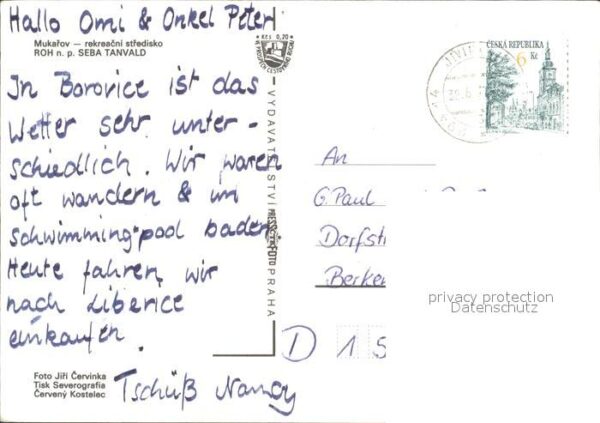 Hallo Omi & Onkel Peter
Mukařov – rekreační středisko
ROH n. p. SEBA TANVALD
In Borovice ist das
Wetter sehr unter-
schiedlich. Wir waren
oft wandern & im
Schwimmingpool baden.
Heute fahren wir
nach Liberice
einkaufen.
Tschüß Nancy
Foto Jiří Červinka
Tisk Severografia
Červený Kostelec
Kčs 0,20
VYDAVATELSTVÍ PRESSFOTO PRAHA
ČESKÁ REPUBLIKA
6 Kč
An
G. Paul
Dorfst
Berke
D 15
privacy protection
Datenschutz